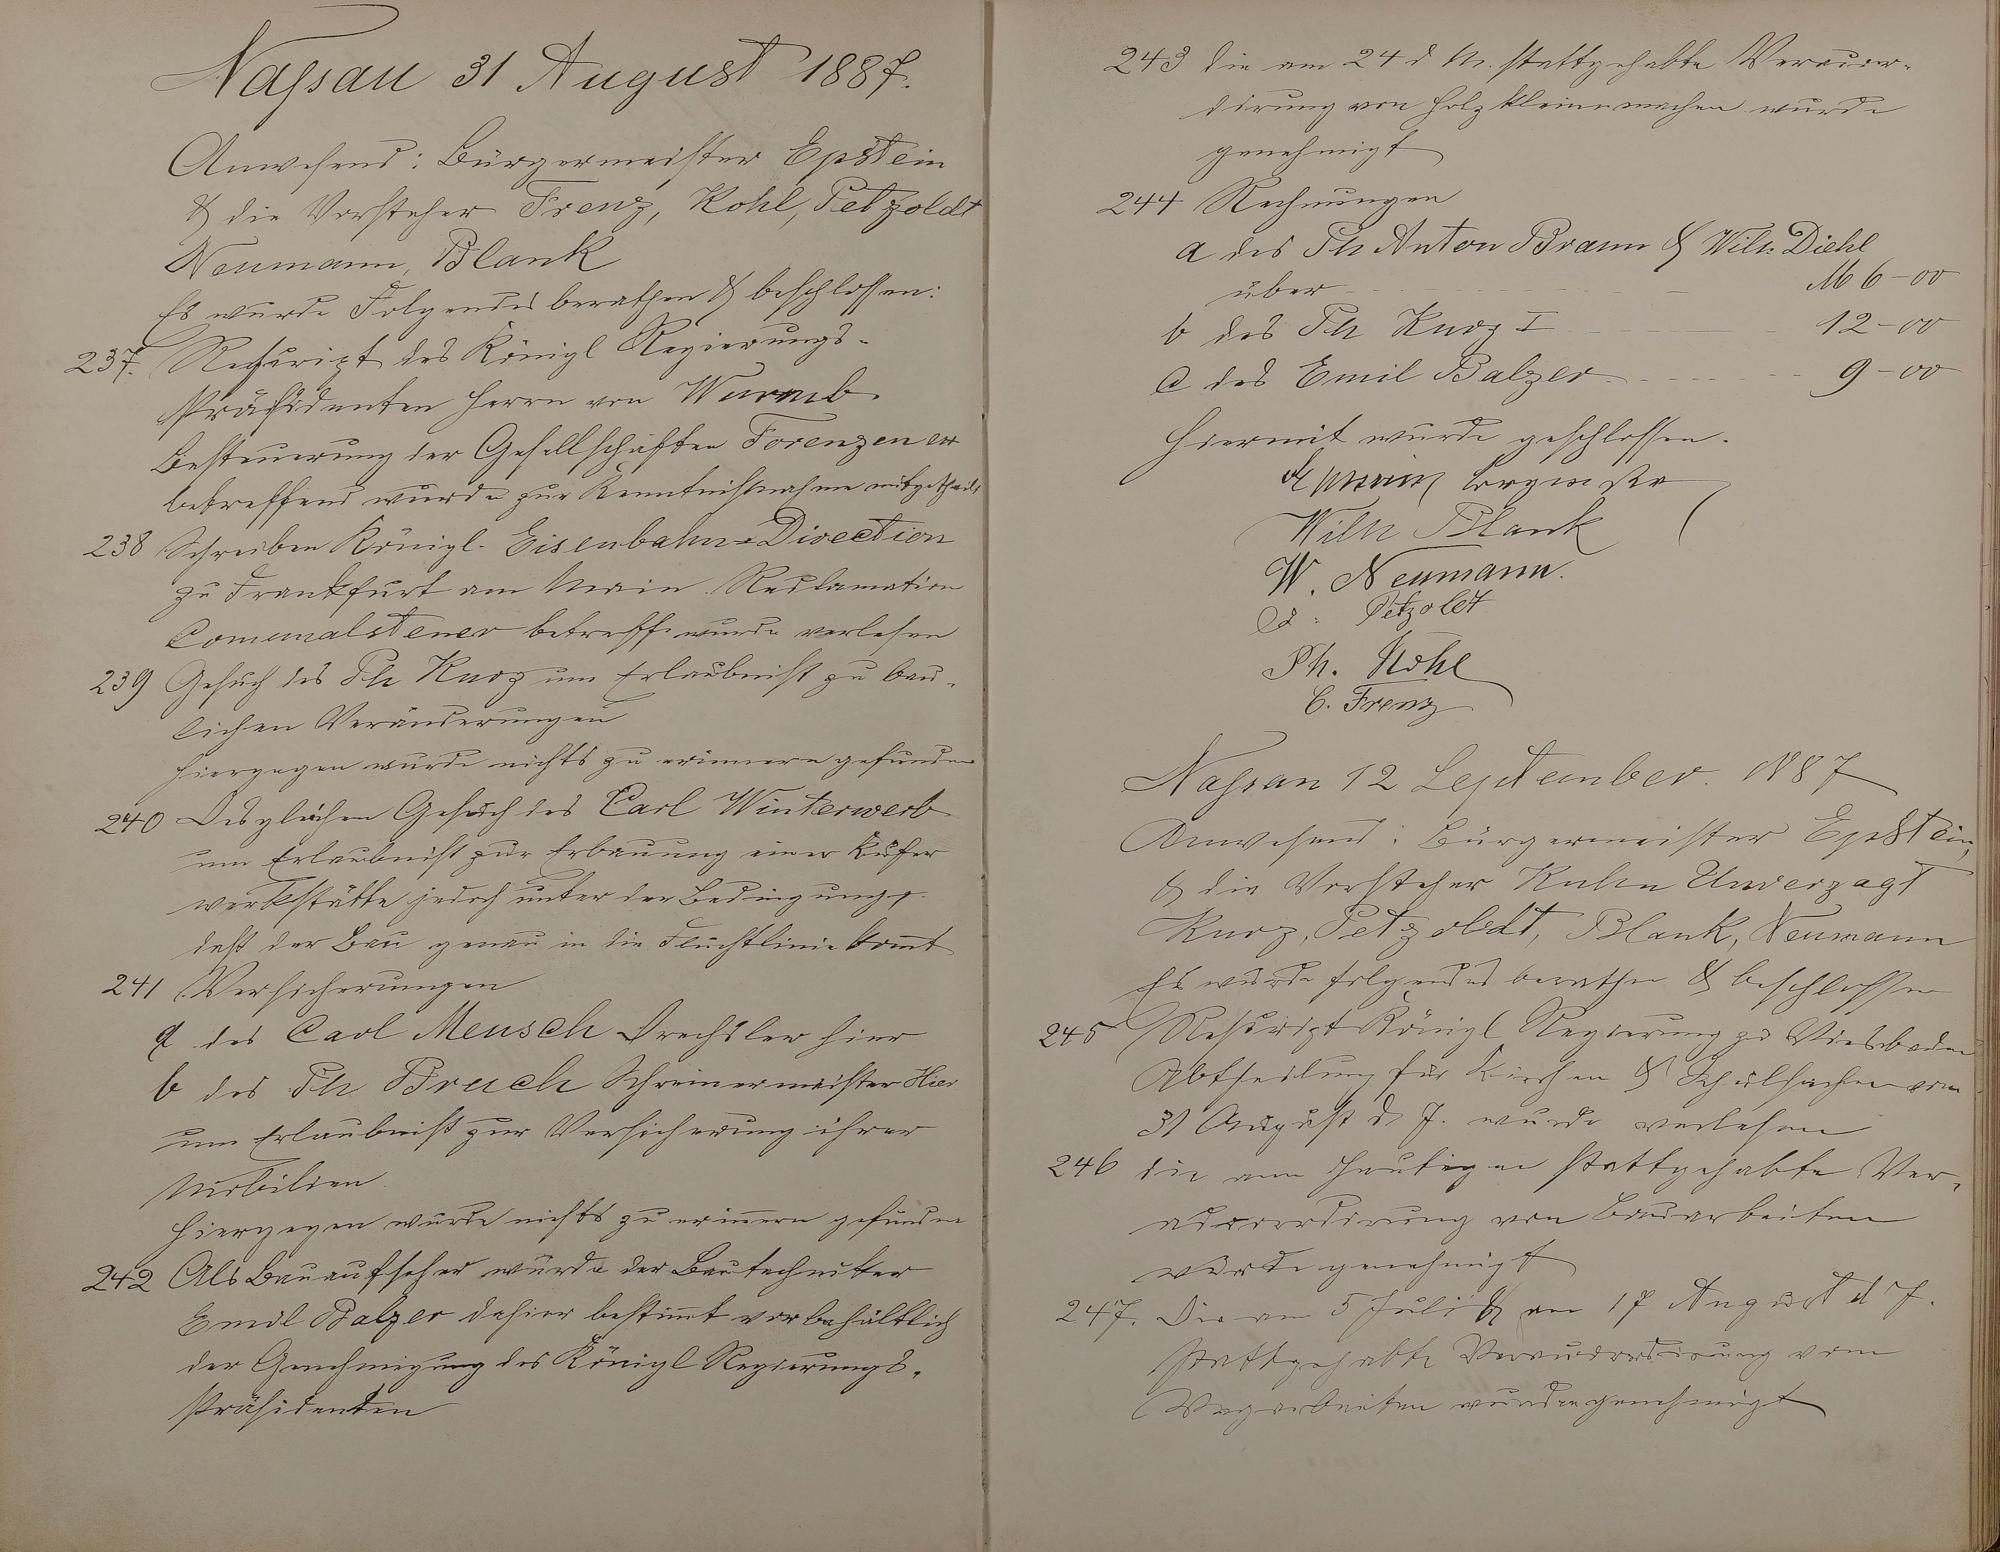 Naßau 31 August 1887.
Anwesend: Bürgermeister Epstein
& die Vorsteher Frenz, Kohl, Petzoldt
Neumann, Blank
Es wurde Folgendes berathen & beschlossen:
237. Rescript des Königl Regierungs-
Präsidenten Herrn von Wurmb
Besteuerung der Gesellschaften Forenzen
betreffend wurde zur Kenntnißnahme mitgetheilt
238 Schreiben Königl. Eisenbahn-Direction
zu Frankfurt am Main Reclamation
Comunalsteuer betreff. wurde verlesen
239 Gesuch des Ph Kurz um Erlaubniß zu bau-
lichen Veränderungen
hiergegen wurde nichts zu erinnern gefunden
240 Desgleichen Gesuch des Carl Winterwerb
um Erlaubniß zur Erbauung einer Küfer
werkstätte jedoch unter der Bedingung,
daß der Bau genau in die Fluchtlinie komt
241 Versicherungen
a des Carl Meusch Drechsler hier
b des Ph Bruch Schreinermeister Hier
um Erlaubniß zur Versicherung ihrer
Mobilien.
Hiergegen wurde nichts zu erinnern gefunden
242 Als Bauaufseher wurde der Bautechniker
Emil Balzer dahier bestimt vorbehältlich
der Genehmigung des Königl Regierungs-
Präsidenten
243 die am 24 d M. stattgehabte Veraccor-
dirung von Holzkleinmachen wurde
genehmigt
244 Rechnungen
a des Ph Anton Braun & Wilh Diehl
über M 6-00
b des Ph Kurz I 12-00
c des Emil Balzer 9-00
Hiermit wurde geschlossen.
Epstein Bürgermstr
Wilh Blank
W. Neumann.
Petzoldt
Ph. Kohl
C. Frenz
Naßau 12 September. 1887
Anwesend: Bürgermeister Epstein,
& die Vorsteher Kuhn Unverzagt
Kurz, Petzoldt, Blank, Neumann
Es wurde folgendes berathen & beschlossen
245 Rescript Königl Regierung zu Wiesbaden
Abtheilung für Kirchen & Schulsachen vom
31 August d J. wurde verlesen
246 die am Heutigen stattgehabte Ver-
accordirung von Bauarbeiten
wurde genehmigt
247. Die am 5 Juli & am 17 August d J.
stattgehabte Veraccordirung von
Wegarbeiten wurde genehmigt